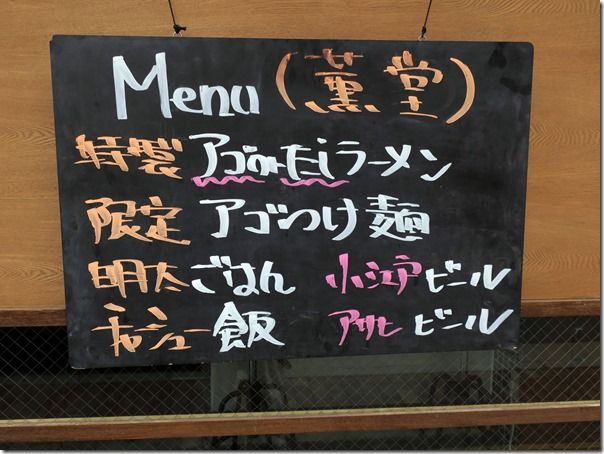 Menu (薫堂)
特製 アゴだしラーメン
限定 アゴつけ麺
明太ごはん 小江戸ビール
チャーシュー飯 アサヒビール